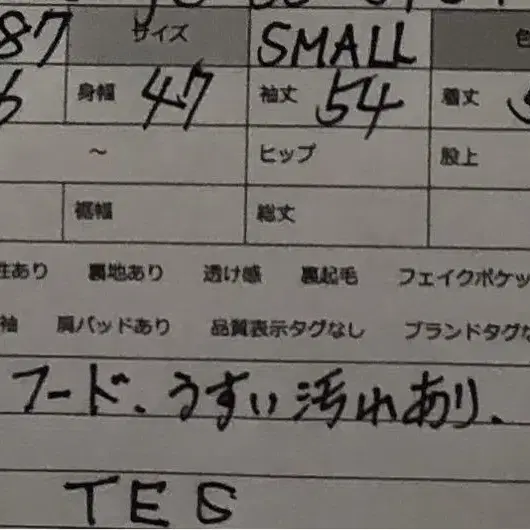 87 サイズ SMALL 色
6 身幅 47 袖丈 54 着丈
～ ヒップ 股上
裾幅 総丈
性あり 裏地あり 透け感 裏起毛 フェイクポケッ
袖 肩パッドあり 品質表示タグなし ブランドタグな
フード、うすい汚れあり、
TES